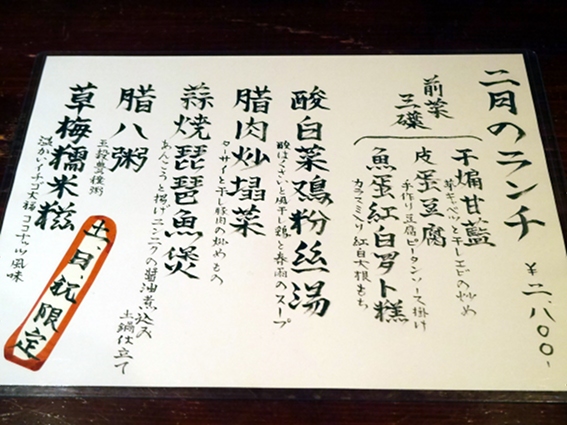 二月のランチ
¥二、八〇〇-
前菜
三碟
干煸甘藍
芽キャベツと干しエビの炒め
皮蛋豆腐
手作り豆腐ピータンソース掛け
魚蛋紅白罗卜糕
カラスミ入り紅白大根もち
酸白菜鶏粉丝湯
酸はくさいと風干し鶏と春雨のスープ
腊肉炒塌菜
ターサイと干し豚肉の炒めもの
蒜焼琵琶魚煲
あんこうと揚げニンニクの醤油煮込み
土鍋仕立て
腊八粥
五穀豊穣粥
草梅糯米糍
温かいイチゴ大福 ココナッツ風味
土日祝限定